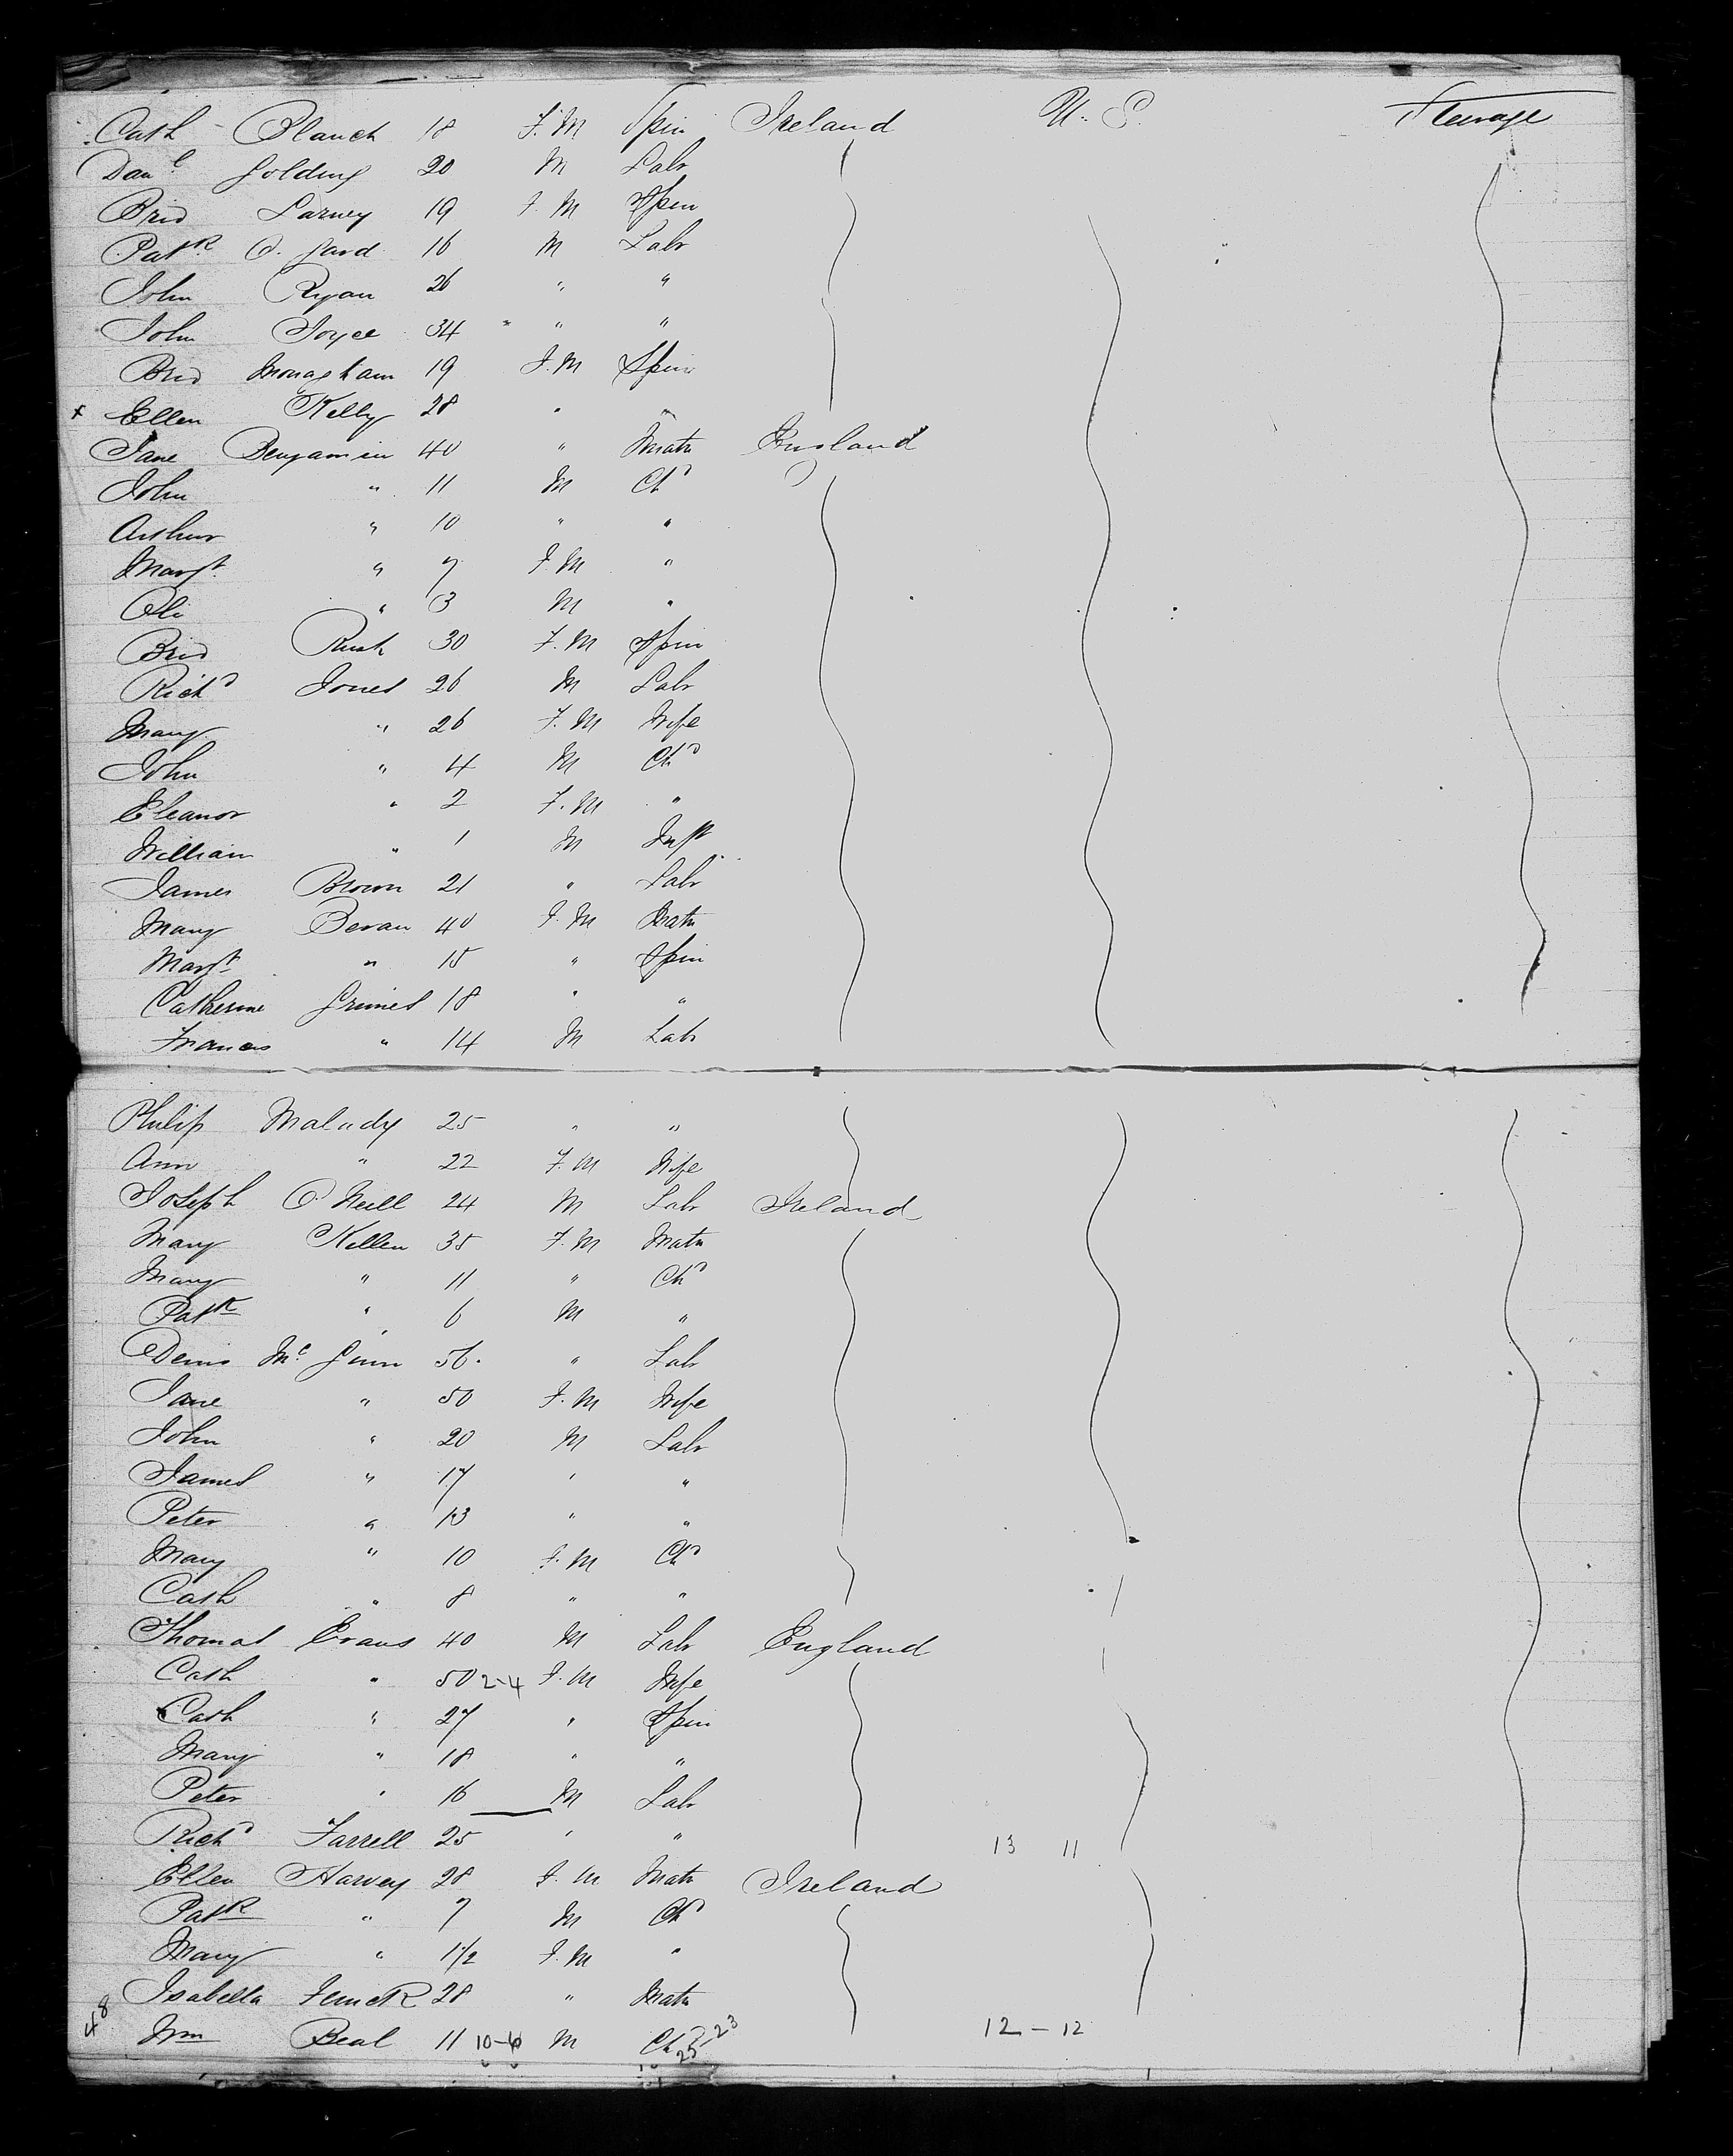 Cath Blanch 18 F.M Spin Ireland U.S. Steerage
Danl Golding 20 M Labr
Brid Larney 19 F.M Spin
Patk O. Gard 16 M Labr
John Ryan 26 " "
John Joyce 34 " "
Brid Monagham 19 F.M Spin
x Ellen Kelly 28 " "
Jane Benjamin 40 " Matn England
John " 11 M Chd
Arthur " 10 " "
Margt " 7 F.M "
Oli " 3 M "
Brid Rush 30 F.M Spin
Richd Jones 26 M Labr
Mary " 26 F.M Wife
John " 4 M Chd
Eleanor " 2 F.M "
William " 1 M Inft
James Brown 21 " Labr
Mary Bevan 40 F.M Matn
Margt " 15 " Spin
Catherine Grimes 18 " "
Francis " 14 M Labr
Philip Malady 25 " "
Ann " 22 F.M Wife
Joseph O'Neill 24 M Labr Ireland
Mary Killen 35 F.M Matn
Mary " 11 " Chd
Patk " 6 M "
Denis Mc Ginn 56 " Labr
Jane " 50 F.M Wife
John " 20 M Labr
James " 17 " "
Peter " 13 " "
Mary " 10 F.M Chd
Cath " 8 " "
Thomas Evans 40 M Labr England
Cath " 50 2-4 F.M Wife
Cath " 27 " Spin
Mary " 18 " "
Peter " 16 M Labr
Richd Farrell 25 " " 13 11
Ellen Harvey 28 F.M Matn Ireland
Patk " 7 M Chd
Mary " 1 1/2 F.M "
Isabella 28 " Matn
48 Wm Beal 11 10-6 M Chd 25 23 12-12